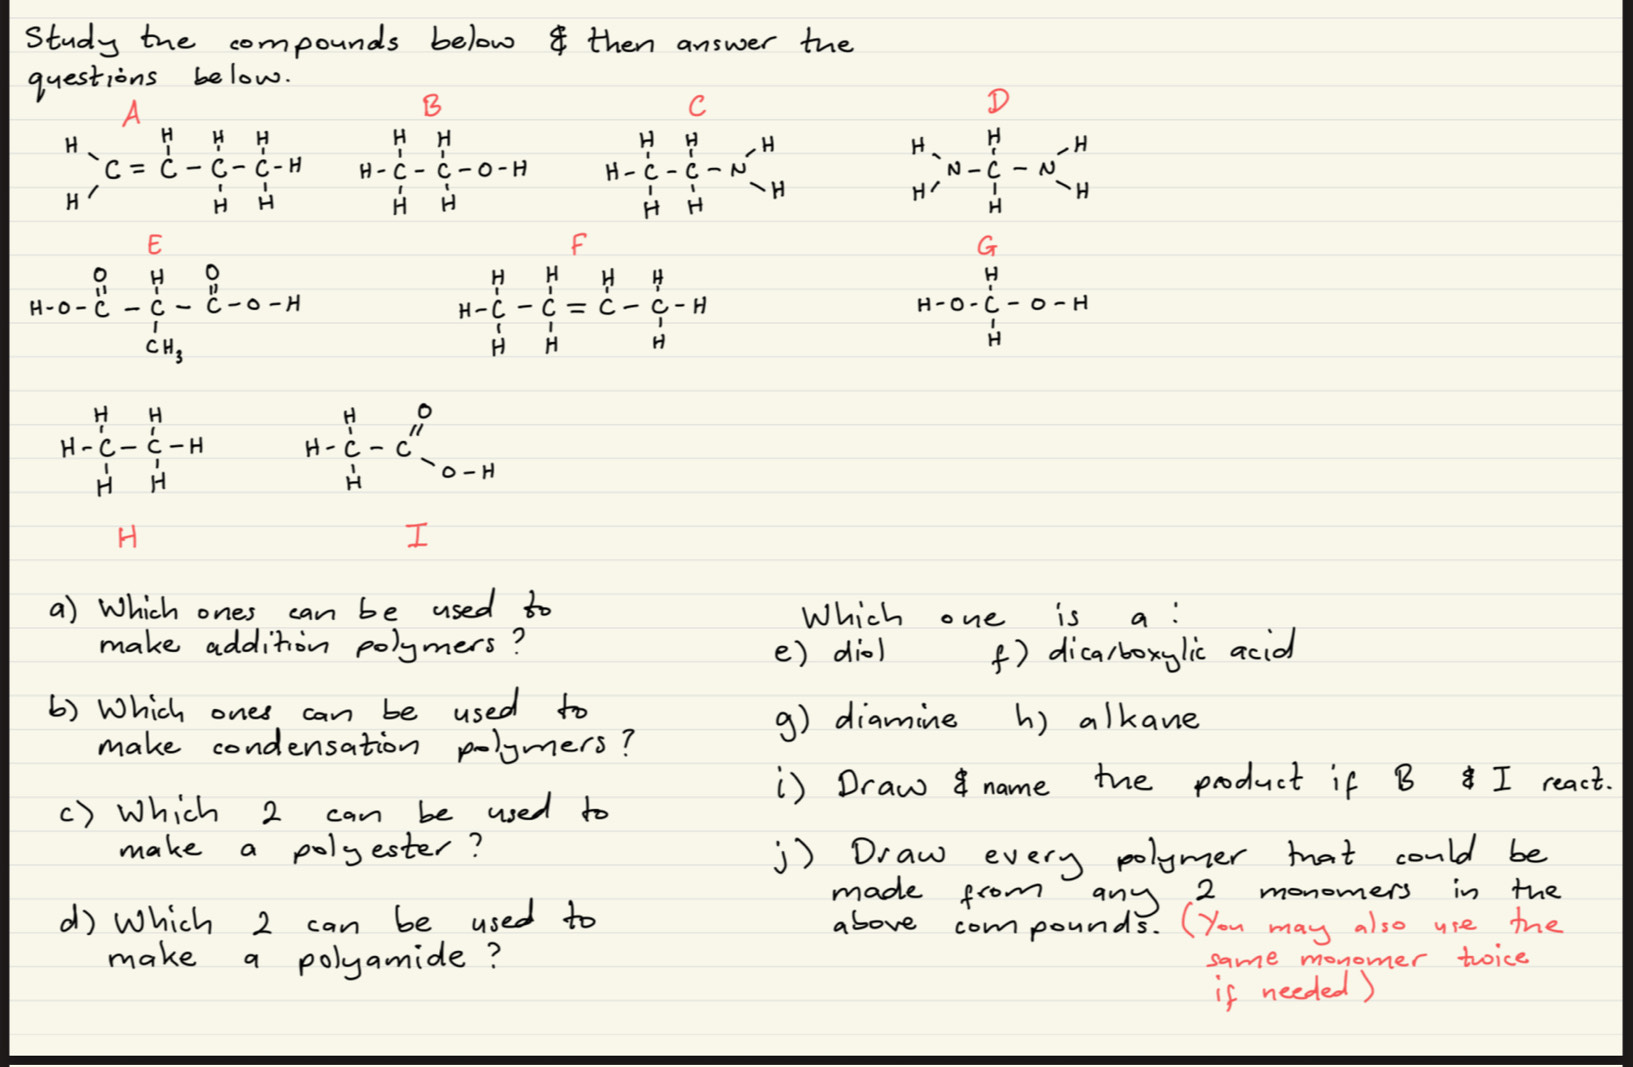 Study the compounds below & then answer the
questions below.
A B C D
H H H H
H C = C - C - C - H
H H H
H H
H - C - C - O - H
H H
H H H
H - C - C - N
H H H
H H H
N - C - N
H H H
E F G
O H O
H - O - C - C - C - O - H
CH₃
H H H H
H - C - C = C - C - H
H H H
H
H - O - C - O - H
H
H H
H - C - C - H
H H
H O
H - C - C
H O - H
H I
a) Which ones can be used to
make addition polymers?
b) Which ones can be used to
make condensation polymers?
c) Which 2 can be used to
make a polyester?
d) Which 2 can be used to
make a polyamide?
Which one is a :
e) diol f) dicarboxylic acid
g) diamine h) alkane
i) Draw & name the product if B & I react.
j) Draw every polymer that could be
made from any 2 monomers in the
above compounds. (You may also use the
same monomer twice
if needed)